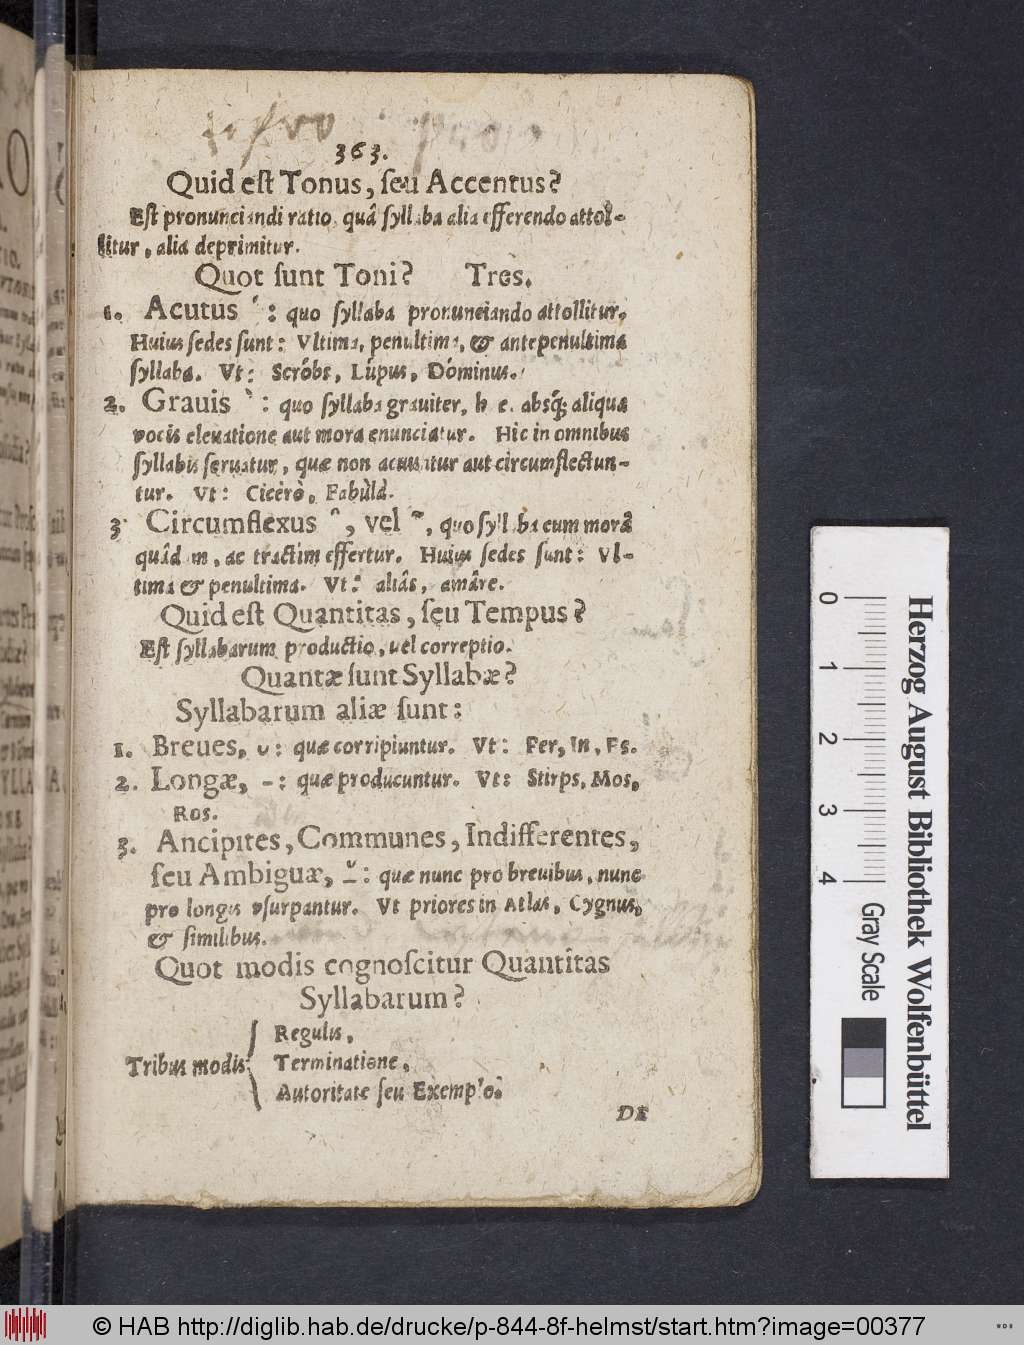 363.
Quid eſt Tonus, ſeu Accentus?
Eſt pronunciandi ratio, quâ ſyllaba alia efferendo attol-
litur, alia deprimitur.
Quot ſunt Toni? Tres.
1. Acutus ´: quo ſyllaba pronunciando attollitur.
Huius ſedes ſunt: Vltima, penultima, & antepenultima
ſyllaba. Vt: Scróbs, Lúpus, Dóminus.
2. Grauis `: quo ſyllaba grauiter, h. e. absq́; aliqua
vocis eleuatione aut mora enunciatur. Hic in omnibus
ſyllabis ſeruatur, quæ non acuuntur aut circumflectun-
tur. Vt: Cicèrò, Fabùlà.
3 Circumflexus ^, vel ~, quo ſyllaba cum morâ
quâdam, ac tractim effertur. Huius ſedes ſunt: Vl-
tima & penultima. Vt: aliâs, amâre.
Quid eſt Quantitas, ſeu Tempus?
Eſt ſyllabarum productio, vel correptio.
Quantæ ſunt Syllabæ?
Syllabarum aliæ ſunt:
1. Breues, ᴗ: quæ corripiuntur. Vt: Fer, In, Fs.
2. Longæ, -: quæ producuntur. Vt: Stirps, Mos,
Ros.
3. Ancipites, Communes, Indifferentes,
ſeu Ambiguæ, ⏓: quæ nunc pro breuibus, nunc
pro longis vſurpantur. Vt priores in Atlas, Cygnus,
& ſimilibus.
Quot modis cognoſcitur Quantitas
Syllabarum?
Regulis,
Tribus modis: Terminatione,
Autoritate ſeu Exemplo.
DE
Herzog August Bibliothek Wolfenbüttel
0 1 2 3 4
Gray Scale
© HAB http://diglib.hab.de/drucke/p-844-8f-helmst/start.htm?image=00377